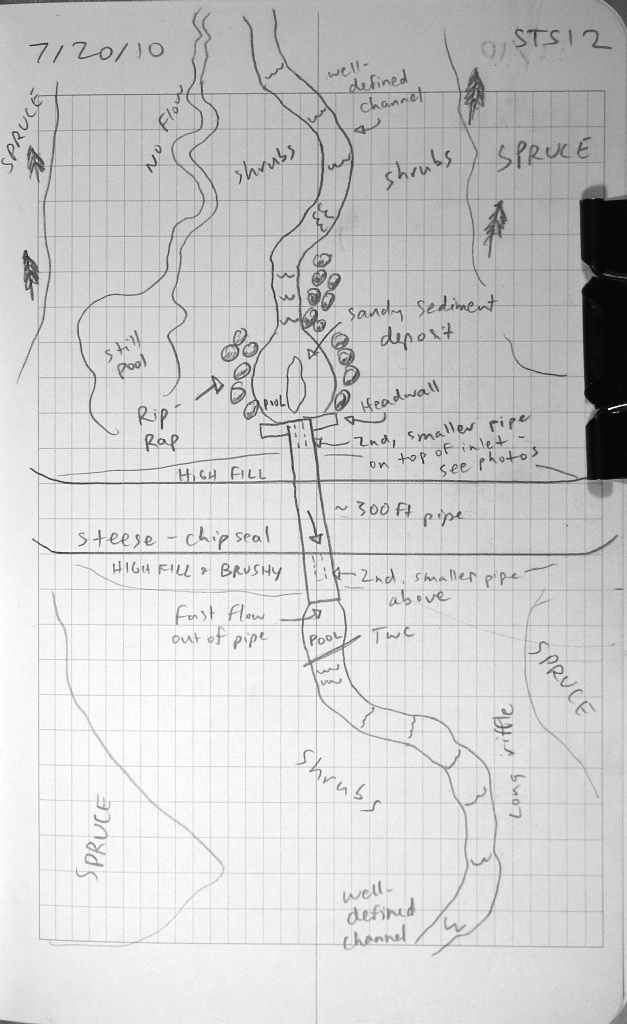 7/20/10
STS12
SPRUCE
NO FLOW
well-
defined
channel
shrubs
shrubs
SPRUCE
sandy sediment
deposit
still
pool
POOL
Rip-
Rap
Headwall
2nd, smaller pipe
on top of inlet -
see photos
HIGH FILL
~ 300 ft pipe
steese - chip seal
HIGH FILL & BRUSHY
2nd, smaller pipe
above
Fast flow
out of pipe
POOL
TWC
SPRUCE
Long riffle
shrubs
SPRUCE
well-
defined
channel